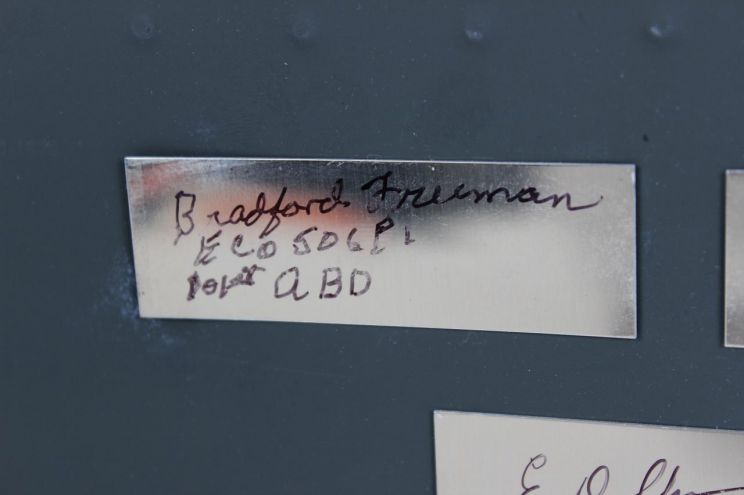 Bradford Freeman
E CO 506 PI
101st ABD
E.D.